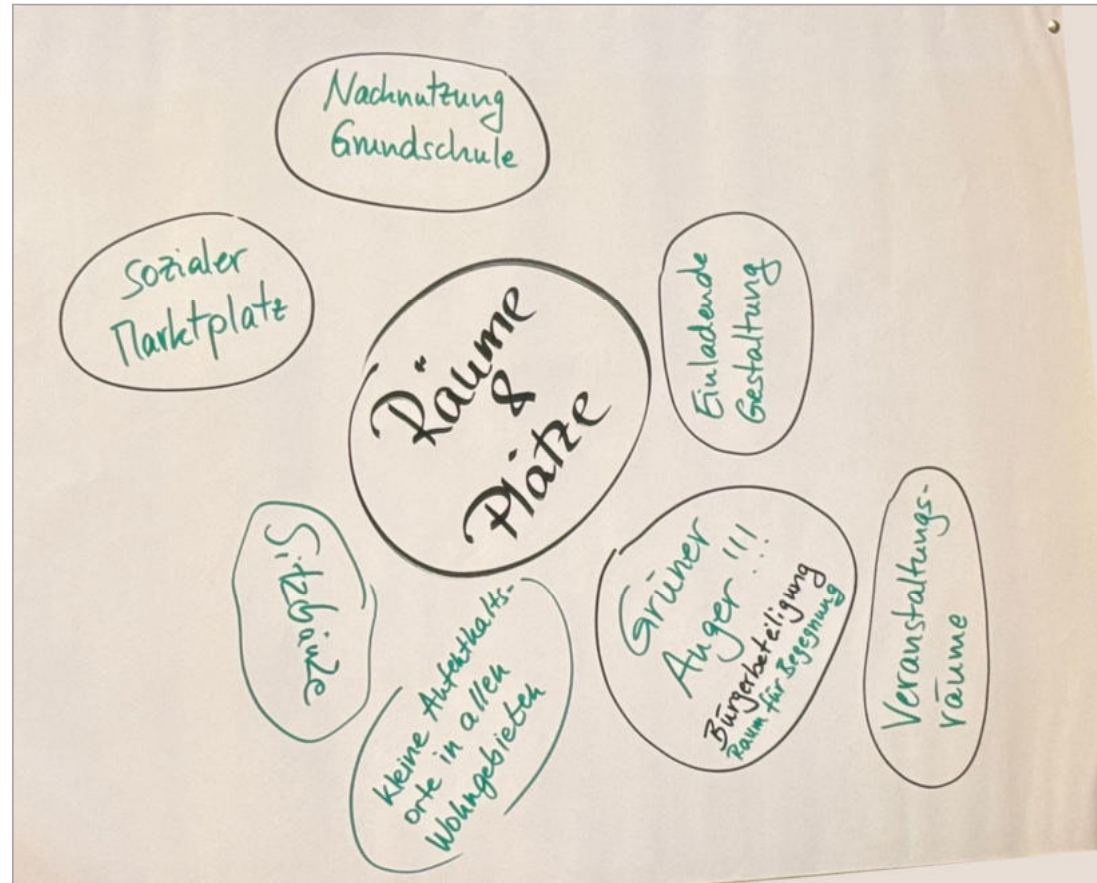 Nachnutzung
Grundschule
Sozialer
Marktplatz
Räume
&
Plätze
Einladende
Gestaltung
Sitzbänke
kleine Aufenthalts-
orte in allen
Wohngebieten
Grüner
Anger!!!
Bürgerbeteiligung
Raum für Begegnung
Veranstaltungs-
räume